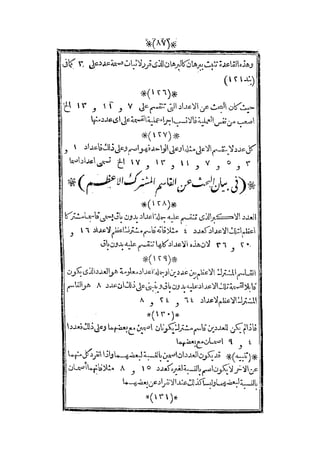 *(٨٧)*
وهذه القاعدة تثبت ببرهان كالبرهان الذى قرر لاثبات صحة عدد على ٣ كما فى
(بند ١٢١)
*(١٢٦)*
حيث كان البحث عن الاعداد التى تنقسم على ٧ و ١١ و ١٣ الخ
اصعب من نفس العملية فالانسب اجراء عملية القسمة على اى عدد منها
*(١٢٧)*
كل عدد لا ينقسم الا على مثله او على الواحد فهو اسم وعلى ذلك فاعداد ١ و
٣ و ٥ و ٧ و ١١ و ١٣ و ١٧ الخ تسمى اعدادا صما
*(فى بيان البحث عن القاسم المشترك الاعظم)*
*(١٢٨)*
العدد الاكبر الذى تنقسم عليه جملة اعداد بدون باق يسمى قاسما مشتركا
اعظم لتلك الاعداد كعدد ٤ مثلا فانه قاسم مشترك اعظم لاعداد ١٦ و
٢٠ و ٣٦ لان هذه الاعداد كلها تنقسم عليه بدون باق
*(١٢٩)*
القاسم المشترك الاعظم بين عددين او جملة اعداد معلومة هو العدد الذى يكون
قابلا لقسمة تلك الاعداد عليه بدون باق وينبنى على ذلك ان عدد ٨ هو القاسم
المشترك الاعظم لاعداد ٦٤ و ٢٤ و ٨
*(١٣٠)*
فاذا لم يكن للعددين قاسم مشترك يكونان اصمين مع بعضهما وعلى ذلك فعددا
٤ و ٩ اصمان مع بعضهما
*(تنبيه)* قد يكون العددان اصمين بالنسبة لبعضهما واذا انفرد كل منهما
عن الاخر لا يكون اصم بالنسبة لغيره كعدد ١٥ و ٨ مثلا فانهما اصمان
بالنسبة لبعضهما وليسا كذلك عند الانفراد عن بعضهما
*(١٣١)*